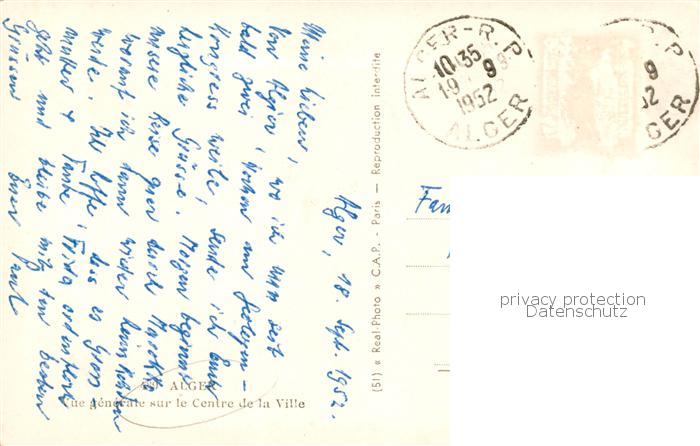 Alger, 18. Sept. 1952.
Meine Lieben, wo ich nun seit
bald zwei Wochen am Geologen-
kongress weile, sende ich Euch
herzliche Grüsse. Morgen beginnt
unsere Reise quer durch Marokko
worauf ich dann wieder heimkehren
werde. Ich hoffe, dass es Gross
mutter & Tante Frida ordentlich
geht und bleibe mit den besten
Grüssen Euer Paul
Fam
ALGER-R.P
10H35
19 9
1952
ALGER
R.P
9
52
GER
ALGER
Vue générale sur le Centre de la Ville
(51) « Real-Photo » C.A.P. - Paris — Reproduction interdite
privacy protection
Datenschutz